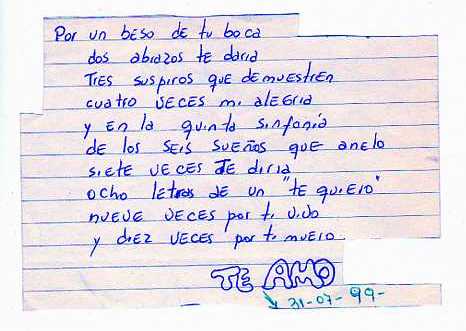 Por un beso de tu boca
dos abrazos te daria
tres suspiros que demuestren
cuatro veces mi alegria
y en la quinta sinfonia
de los seis sueños que anelo
siete veces te diria
ocho letras de un "te quiero"
nueve veces por ti vivo
y diez veces por ti muero.
TE AMO
31-07-99-